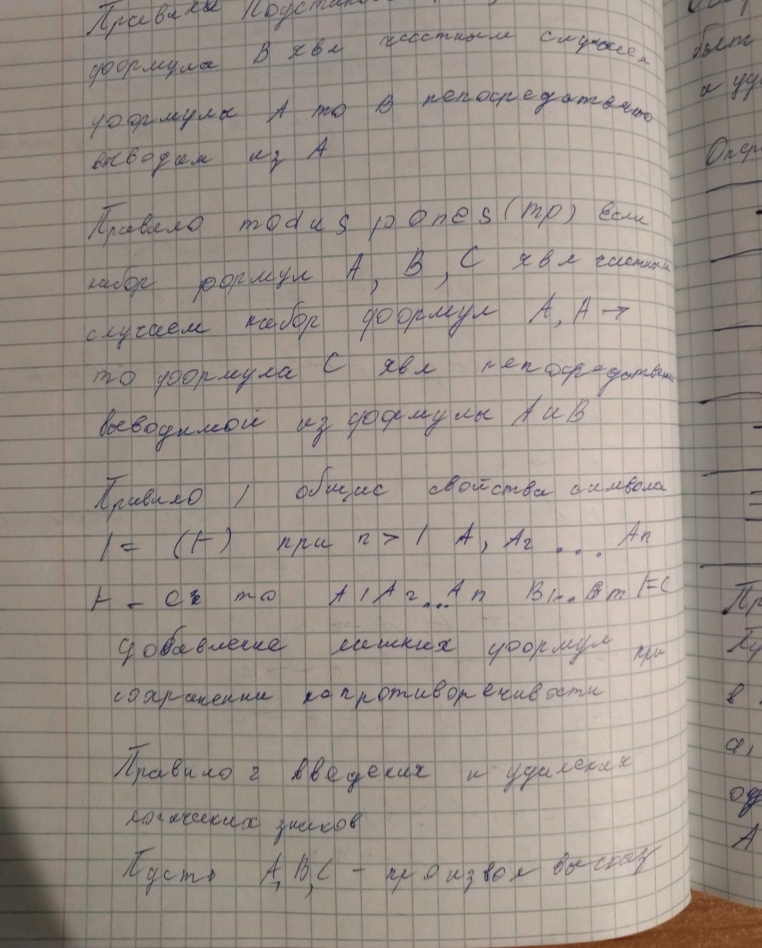 Правила Подстанов
формула В явл частным случаем
формулы А то В непосредственно
выводим из А
Правило modus pones (mp) если
набор формул А, В, С явл частным
случаем набор формул А, А →
то формула С явл непосредственно
выводимой из формулы А и В
Правило 1 общие свойства символа
|= (⊢) при n > 1 A, A2 ... An
⊢ - C то A1A2...An B1..Bm ⊢C
добавление лишних формул при
сохранении напротиворечивости
Правило 2 введения и удаления
логических знаков
Пусть А,В,С - произвол высказ
быт
и уд
Опер
Пр
Пу
в
а,
од
А